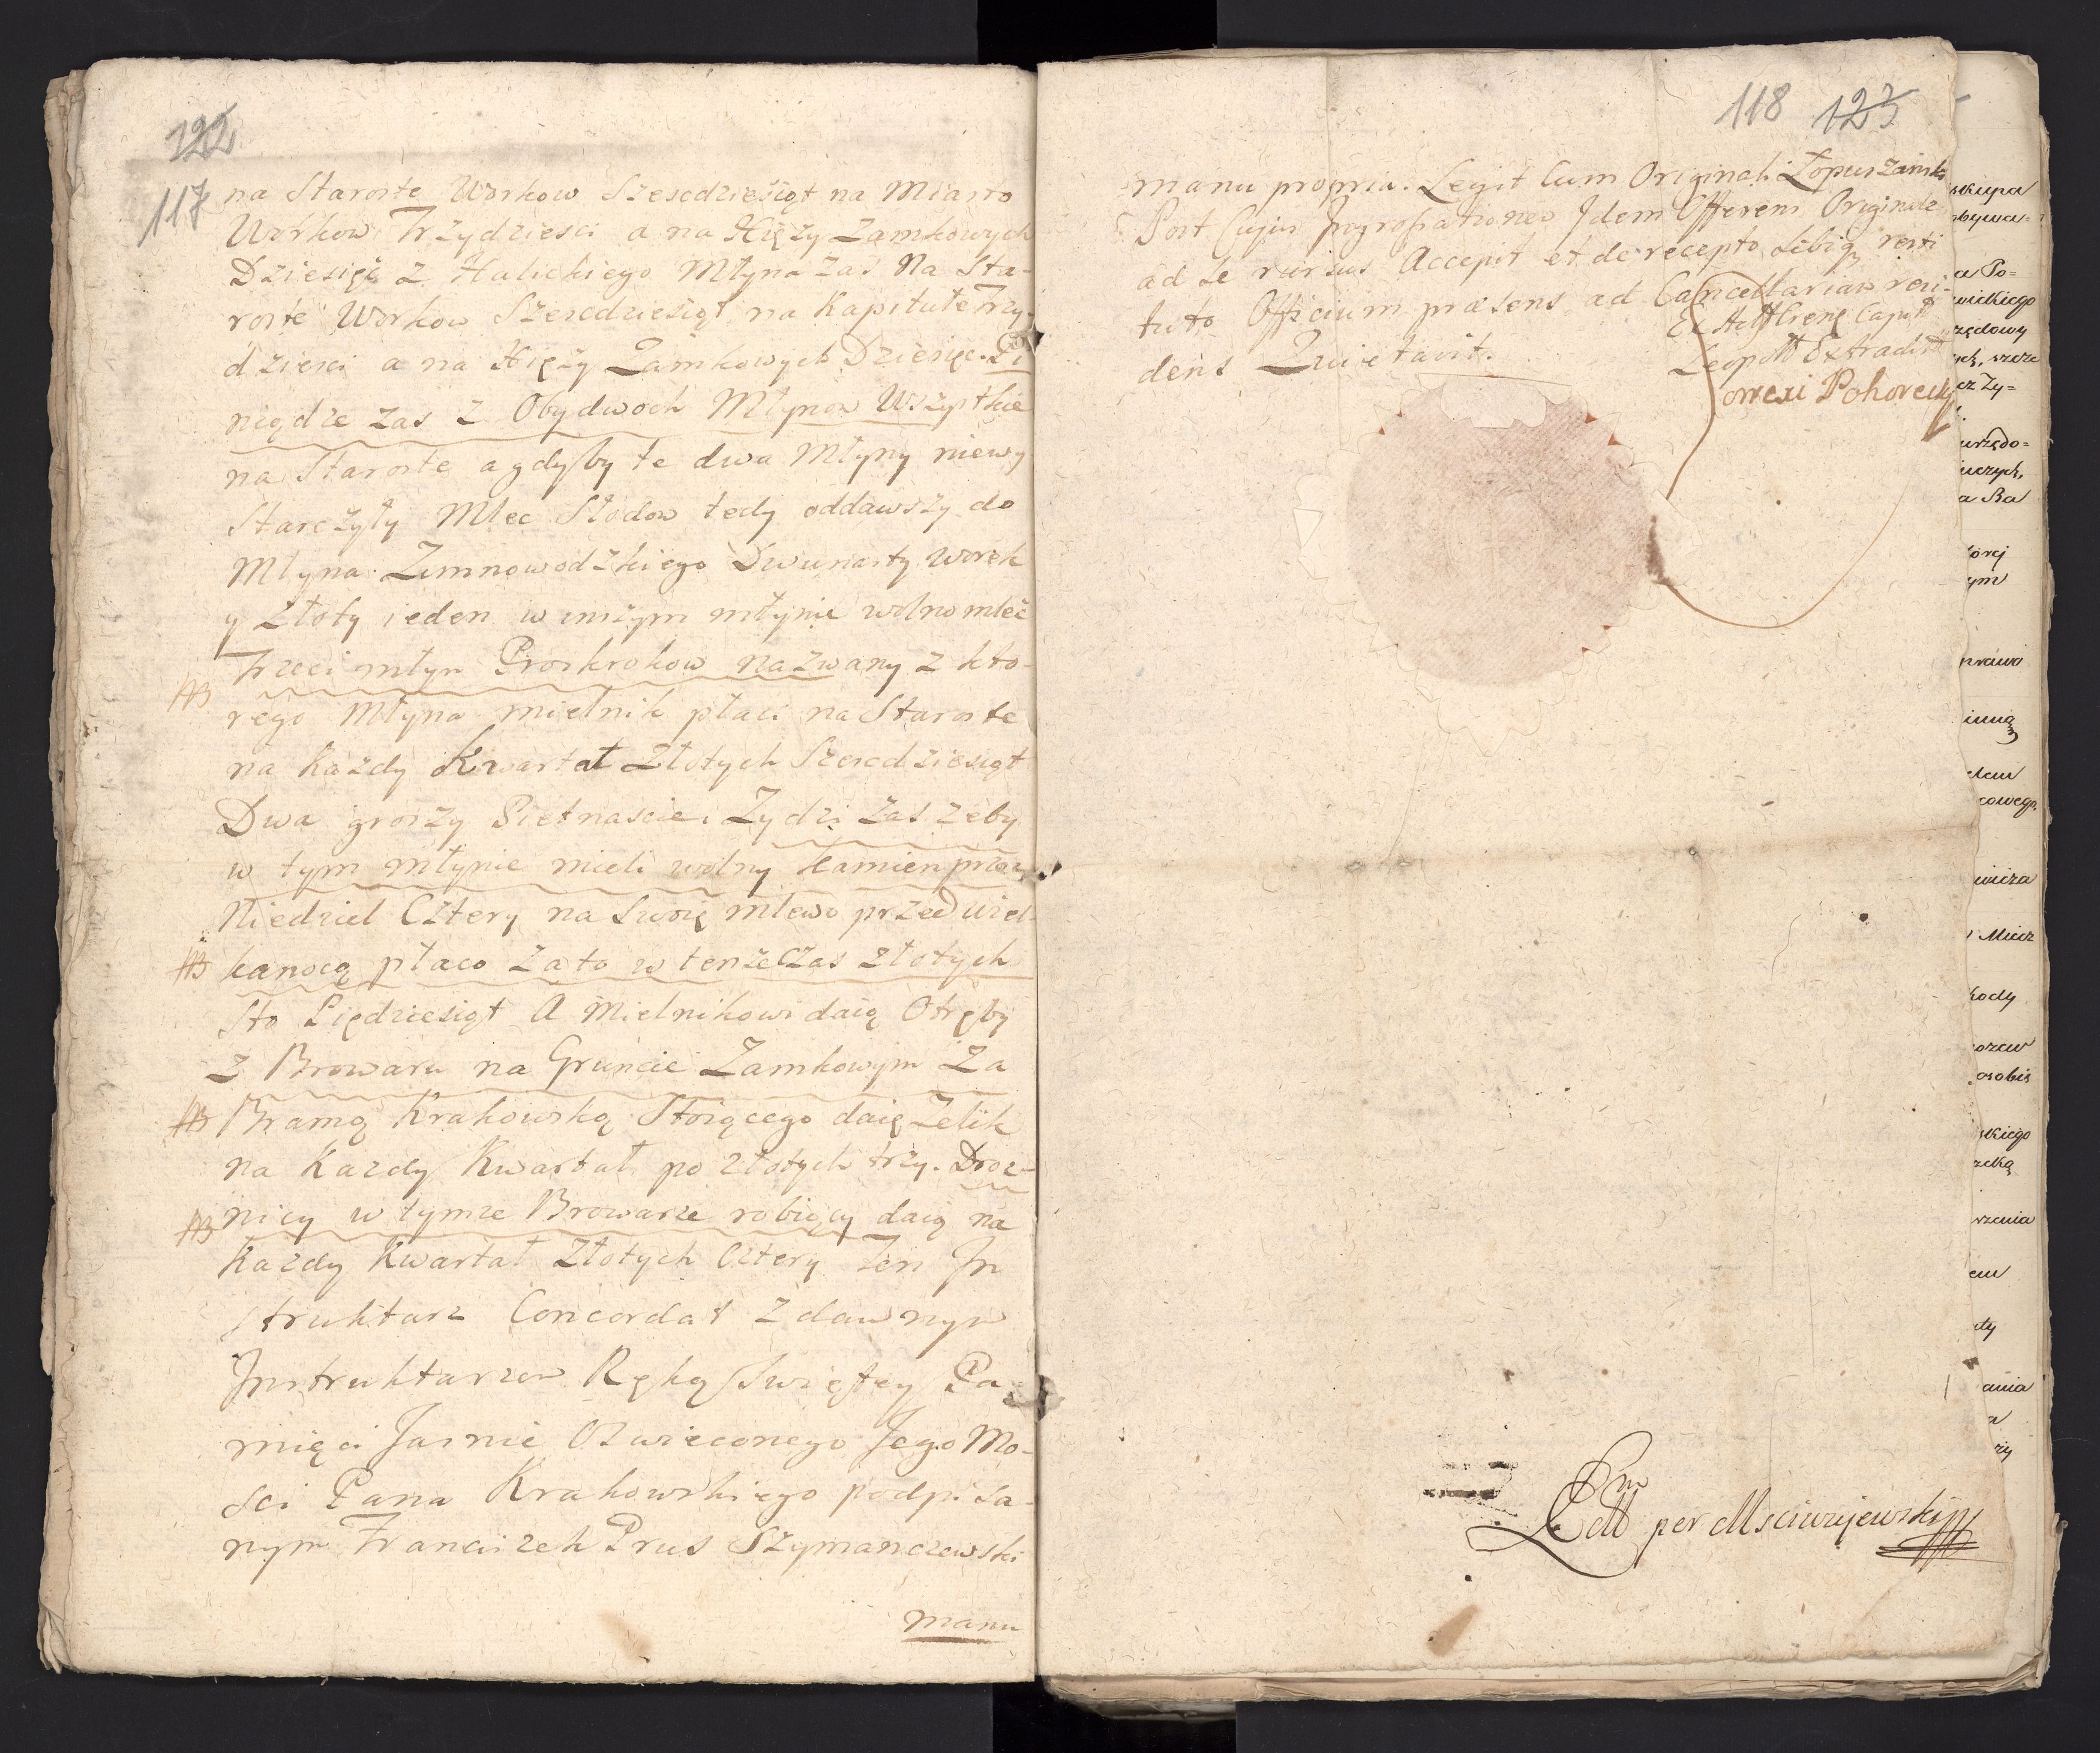 122
117
na Staroste Workow Szescdziesiąt na Miasto
Workow Trzydziesci a na Xięży Zamkowych
Dziesięć z Halickiego Młyna zas Na Sta-
roste Workow Szescdziesiąt na Kapitułe Trzy-
dziesci a na Xięży Zamkowych Dziesięc. Pi
niądze zas z Obydwoch Młynow Wszystkie
na Staroste a gdyby te dwa Młyny niewy
Starczyły Mlec Słodow tedy oddawszy do
Młyna Zimnowodzkiego Dwunasty worek
y złoty ieden w inszym młynie wolno mleć
Trzeci młyn Proskrokow nazwany z kto-
rego Młyna mielnik płaci na Staroste
na każdy Kwartał Złotych Szescdziesiąt
Dwa groszy Pietnascie. Zydzi zas żeby
w tym młynie mieli wolny kamien przez
Niedziel Cztery na swoię mlewo przed Wiel-
NB kanocą płaco za to w tenże czas złotych
Sto Piędziesiąt A Mielnikowi daią Otręby
z Browaru na Gruncie Zamkowym Za
NB Bramą Krakowską Stoiącego daię Zelik
na Kazdy Kwartał po złotych trzy. Droz-
NB nicy w tymze Browarze robiący daią na
Kazdy Kwartał Złotych Cztery Ten In
struktarz Concordat z dawnym
Instruktarzem Ręką Swiętey Pa
mięci Jasnie Oswieconego Jego Mo-
sci Pana Krakowskiego podpisa-
nym Franciszek Prus Szymanczewski
manu
118 123
manu propria. Legit Cum Originali Łopuszański
Post Cujus Ingrossationem Idem Offerens Originale
ad se rursus Accepit et de recepto sibiq resti
tuto Officium præsens ad Cancellariam resi-
dens Quietavit.
Ex Actis Crens Capit
Leopold Extradit
Correxi Pohorecki
per Msciwujewski